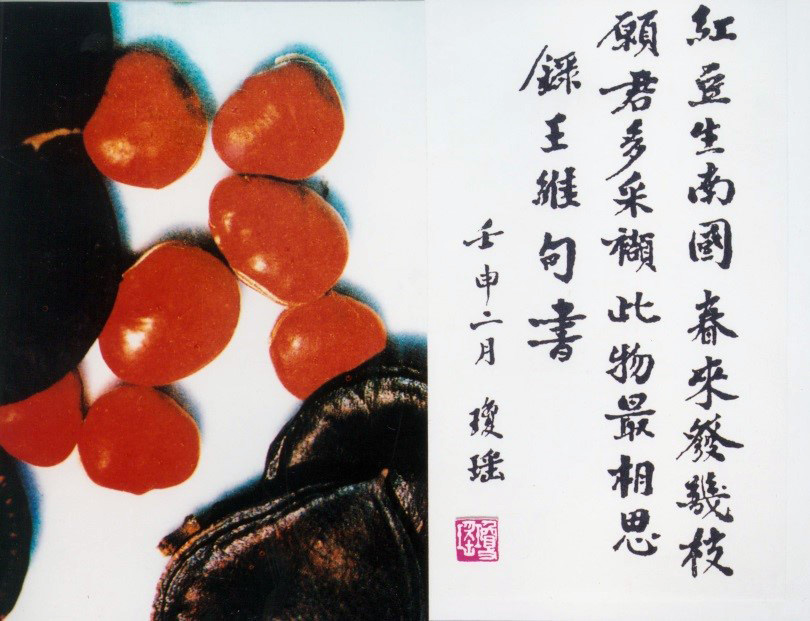 紅豆生南國春來發幾枝
願君多采襭此物最相思
錄王維句書
壬申二月 瓊瑤
瓊瑤